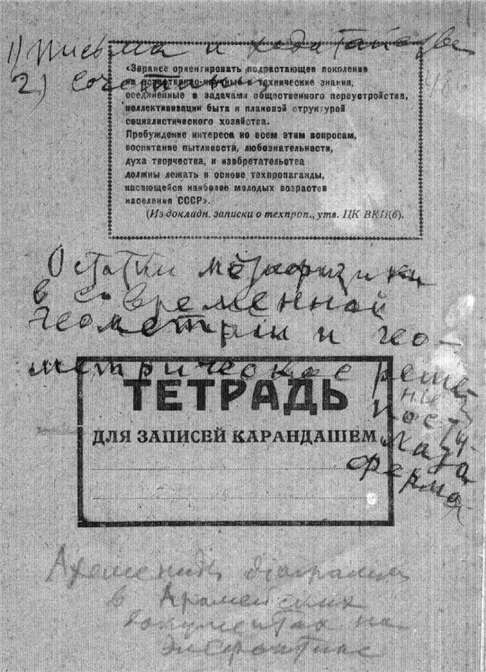 1) Письма и ходатайства
2) Сочетания
«Заранее ориентировать подрастающее поколение
на естественно-научные и технические знания,
соединенные с задачами общественного переустройства,
коллективизации быта и плановой структурой
социалистического хозяйства.
Пробуждение интереса ко всем этим вопросам,
воспитание пытливости, любознательности,
духа творчества, и изобретательства
должны лежать в основе техпропаганды,
касающейся наиболее молодых возрастов
населения СССР».
(Из докладн. записки о техпроп., утв. ЦК ВКП(б).
Остатки метафизики
в современной
геометрии и гео-
метрическое реше-
ние
посту-
лата
Ферма
ТЕТРАДЬ
ДЛЯ ЗАПИСЕЙ КАРАНДАШЕМ
Ахемениды
в Арамейских
документах на
Элефантине